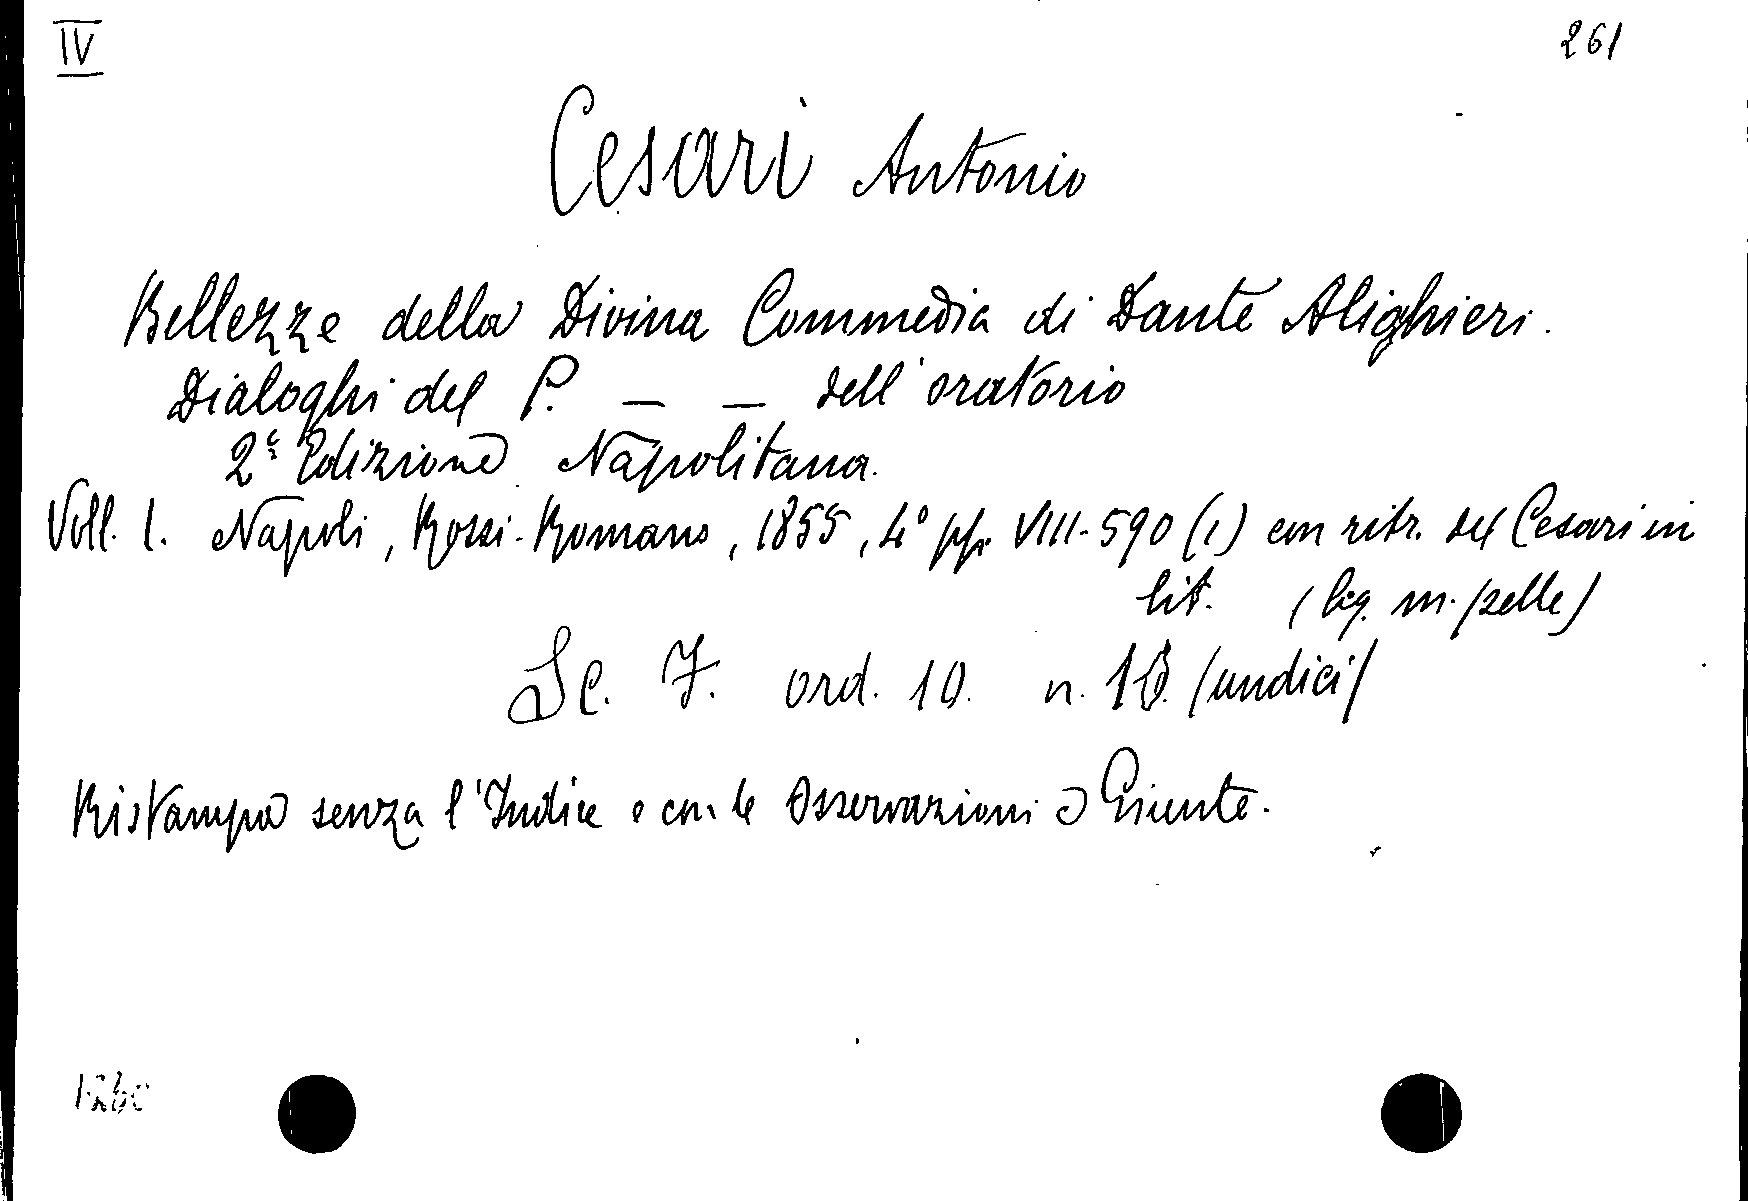 IV
261
Cesari Antonio
Bellezze della Divina Commedia di Dante Alighieri.
Dialoghi del P. _ _ dell'oratorio
2ª Edizione Napolitana.
Voll. 1. Napoli, Rossi-Romano, 1855, 4° pp. VIII-590 (1) con ritr. del Cesari in
lit. (leg. m. pelle)
Sc. 7. ord. 10. n. (undici)
Ristampa senza l'Indice e con le Osservazioni e Giunte.